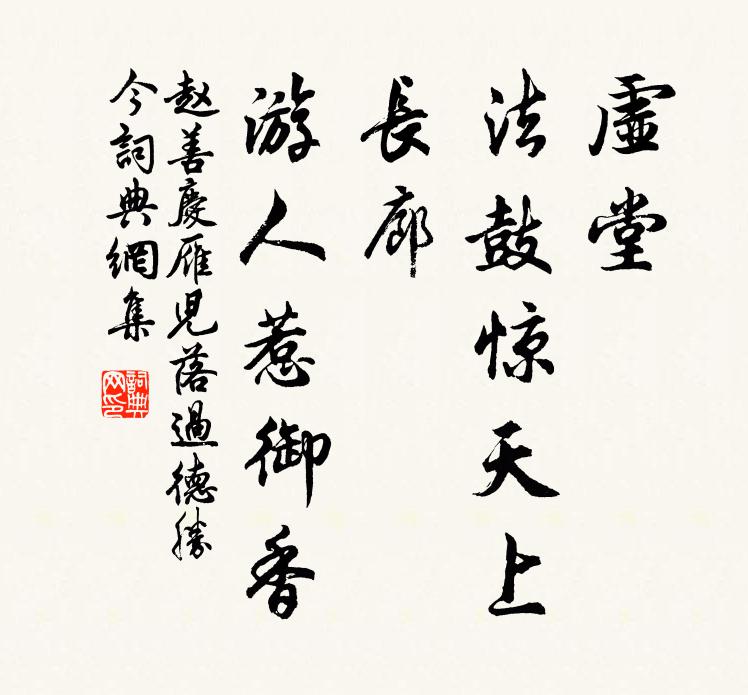 虛堂
法鼓惊天上
長廊
游人惹御香
赵善慶雁兒落過德勝
今詞典網集
詞典网印